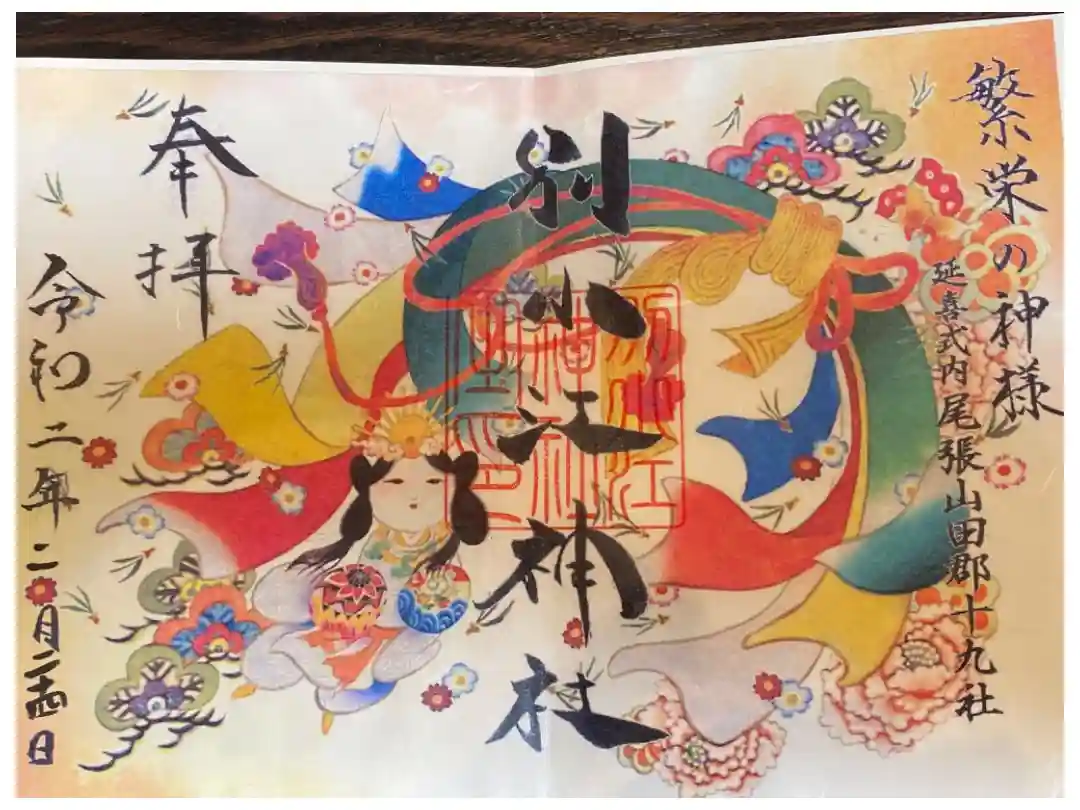 繁栄の神様
延喜式内尾張山田郡十九社
別小江神社
奉拝
令和二年二月二十四日